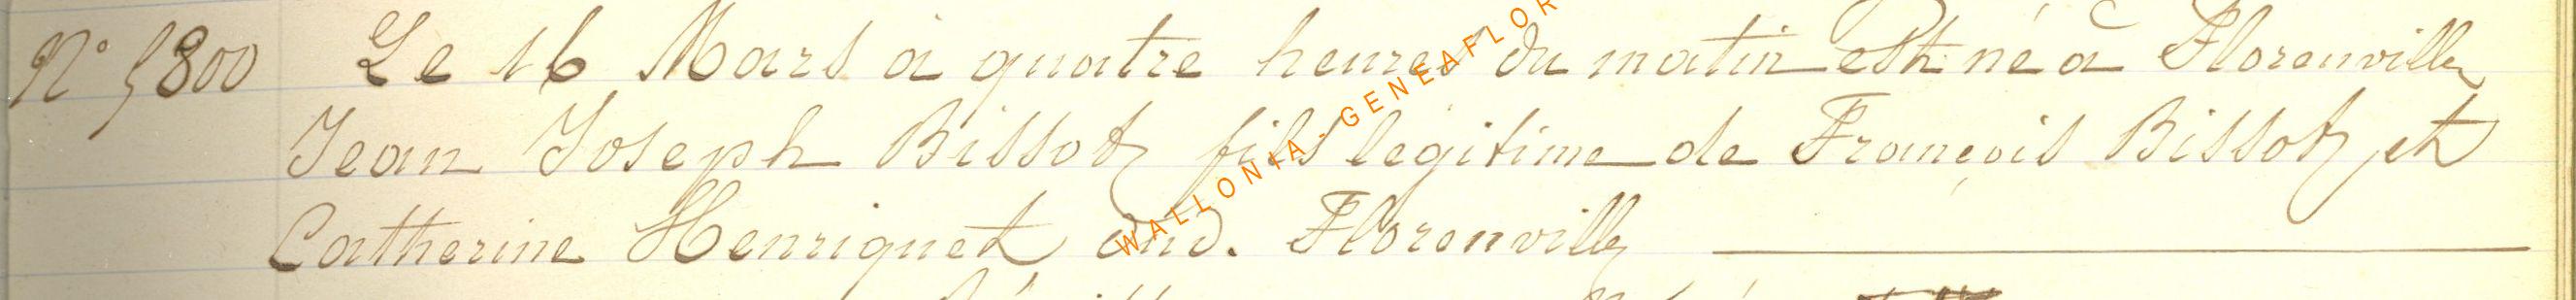 N° 5800 Le 16 Mars à quatre heures du matin est né à Florenville
Jean Joseph Bissot fils legitime de François Bissot et
Catherine Henriquet d. Florenville
WALLONIA - GENEAFLOR